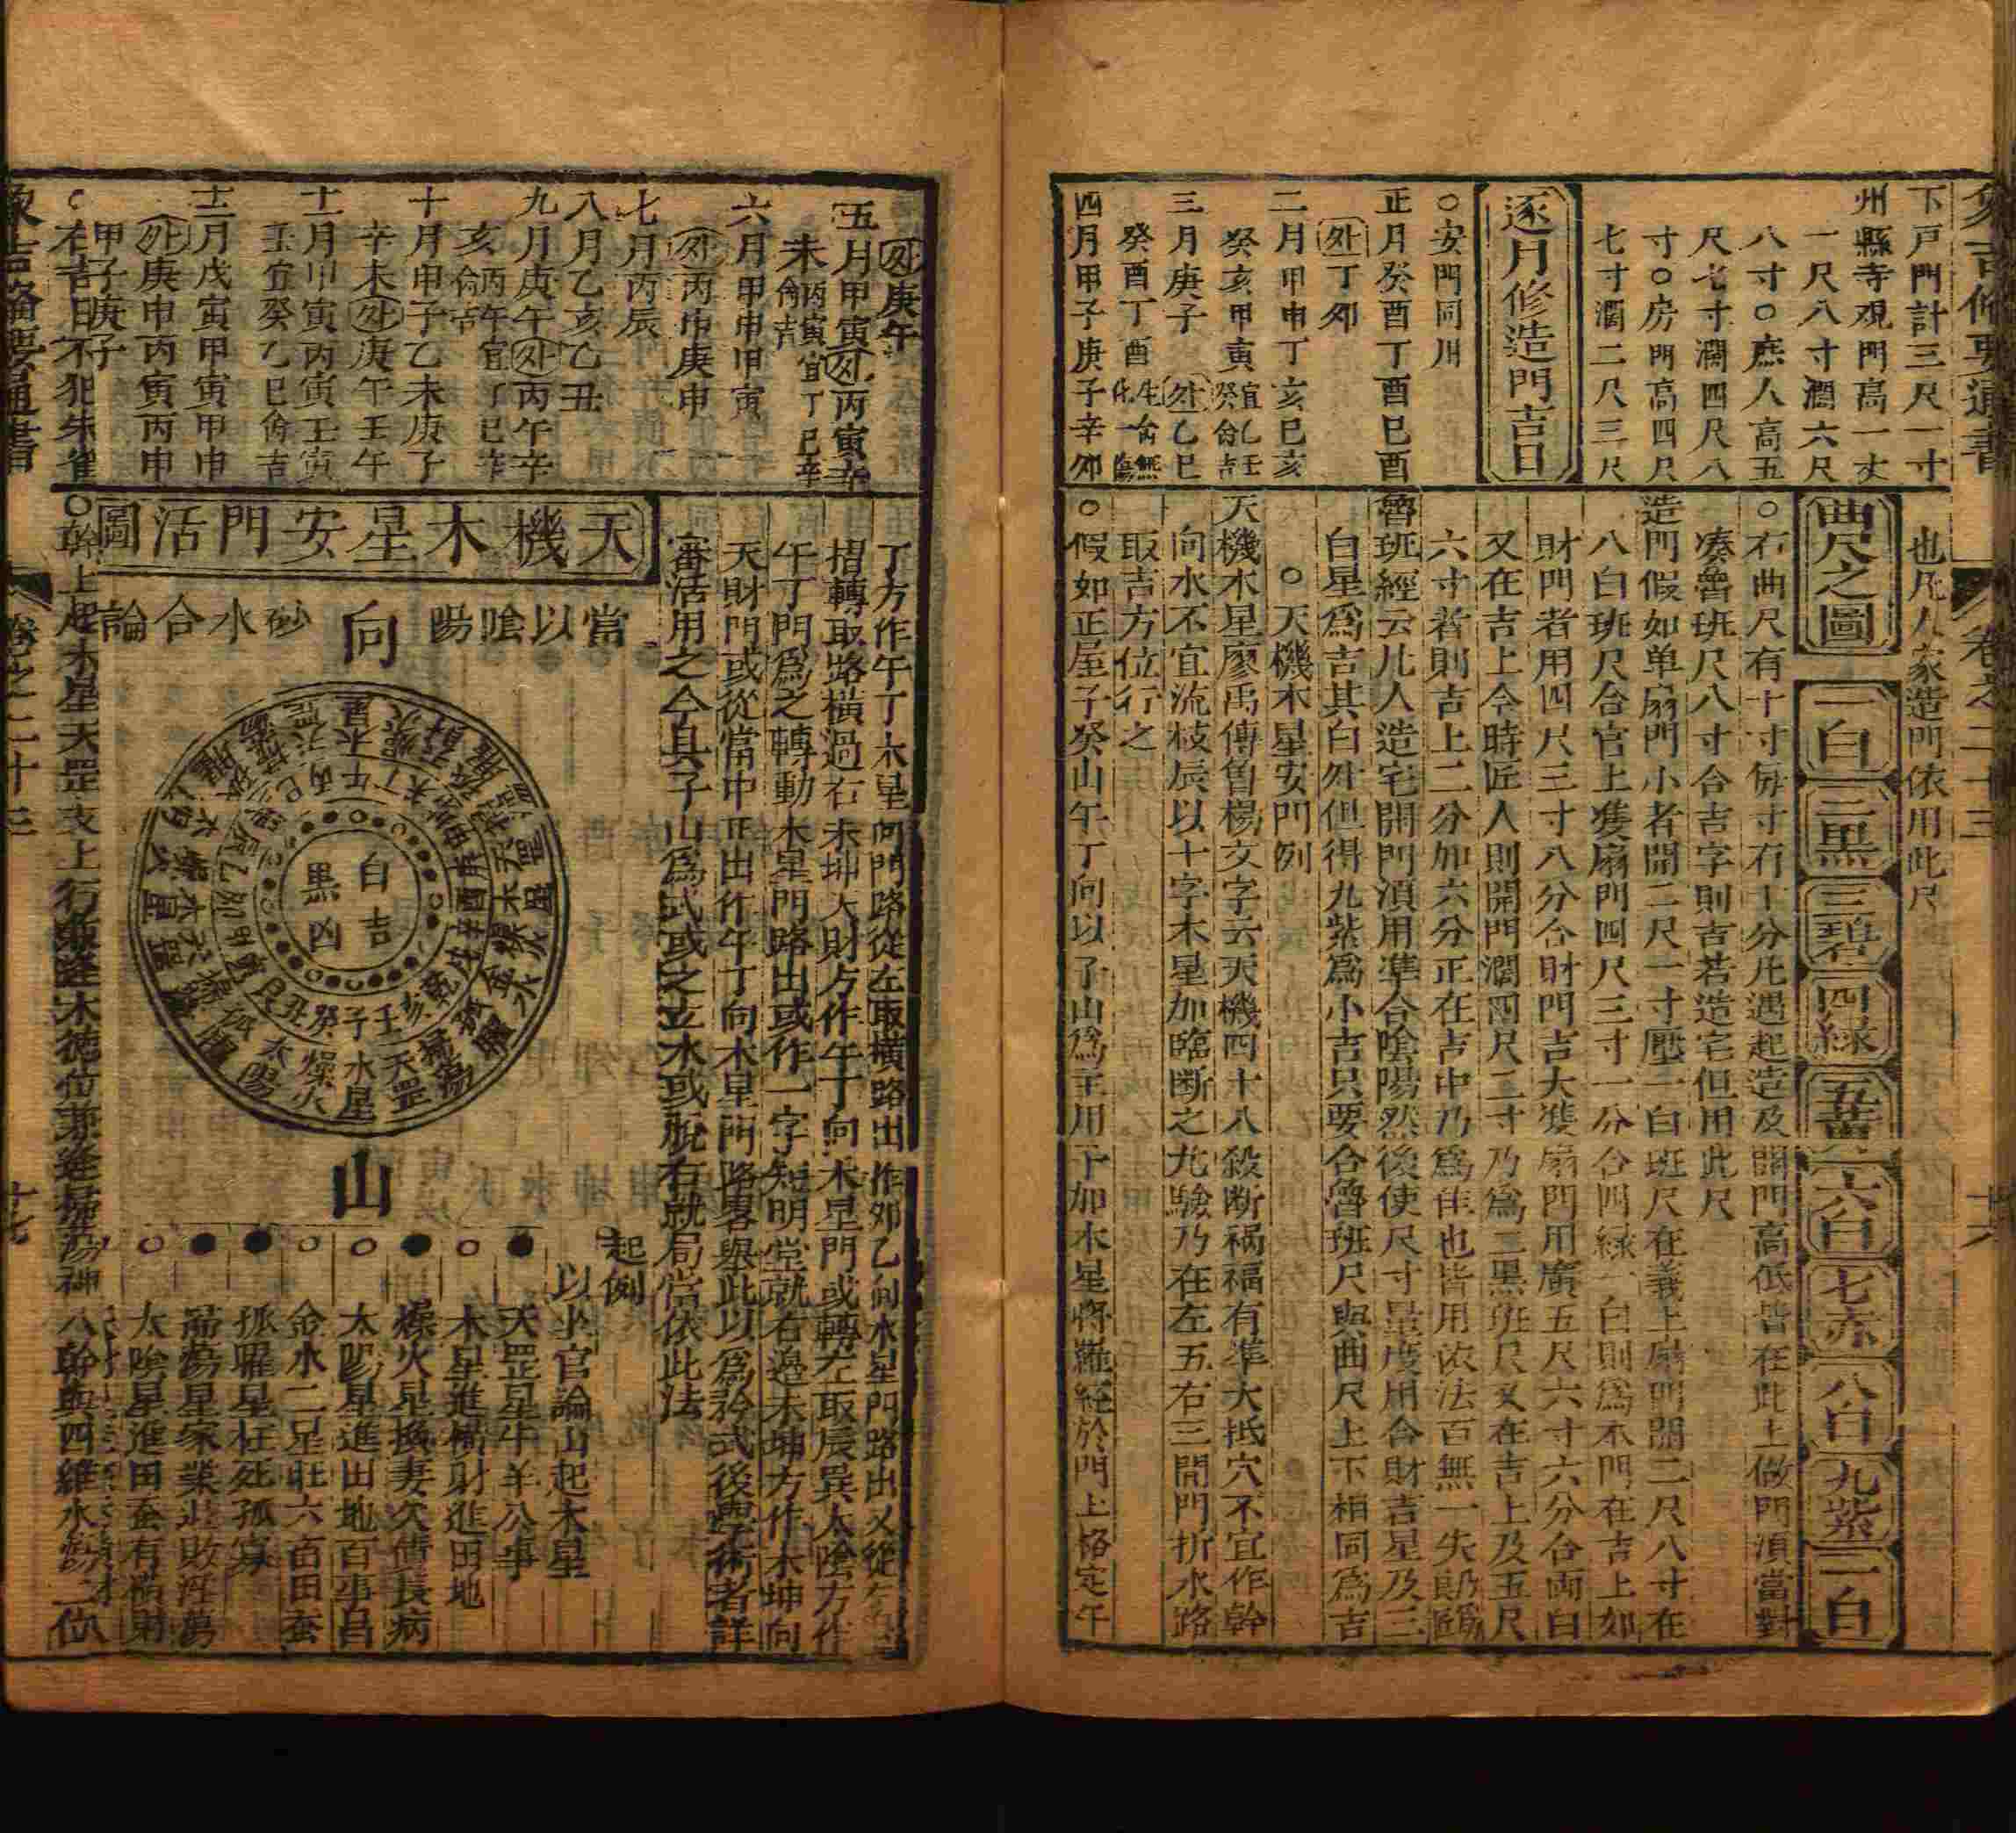 下戸門計三尺一寸
州縣寺觀門高一丈
一尺八寸濶六尺
八寸○庶人高五
尺七寸濶四尺八
寸○房門高四尺
七寸濶二尺三尺
逐月修造門吉日
○安門同用
正月癸酉丁酉巳酉
外丁夘
二月甲申丁亥巳亥
癸亥甲寅宜乙壬癸俻吉
三月庚子外乙巳
癸酉丁酉
四月甲子庚子辛夘
也凡人家造門依用此尺
曲尺之圖
一白
二黒
三碧
四緑
五黄
六白
七赤
八白
九紫
一白
○右曲尺有十寸每寸有十分凡遇起造及開門高低皆在此上做門湏當對
凑魯班尺八寸合吉字則吉若造宅但用此尺
造門假如单扇門小者開二尺一寸壓一白班尺在義上扇門開二尺八寸在
八白班尺合官上雙扇門四尺三寸一分合四緑一白則爲本門在吉上如
財門者用四尺三寸八分合財門吉大雙扇門用廣五尺六寸六分合両白
又在吉上今時匠人則開門濶四尺二寸乃爲二黒班尺又在吉上及五尺
六寸者則吉上二分加六分正在吉中乃爲佳也皆用依法百無一失
魯班經云凡人造宅開門湏用凖合隂陽然後使尺寸量度用合財吉星及三
白星爲吉其白外但得九紫爲小吉只要合魯班尺與曲尺上下相同爲吉
○天機木星安門例
天機木星廖禹傳曾楊文字云天機四十八殺断禍福有凖大抵穴不宜作幹
向水不宜流枝辰以十字木星加臨断之尤驗乃在左五右三開門折水路
取吉方位行之
○假如正屋子癸山午丁向以子山爲主用子加木星將羅經於門上格定午
卷之二十三
外庚午
五月甲寅外丙寅辛
未丙寅宜丁巳辛俻吉
六月甲申甲寅
外丙申庚申
七月丙辰
八月乙亥乙丑
九月庚午外丙午辛
亥丙午宜丁巳辛俻吉
十月甲子乙未庚子
辛未外庚午壬午
十一月甲寅丙寅壬寅
壬宜癸乙巳俻吉
十二月戊寅甲寅甲申
外庚申丙寅丙申
甲子庚子
○右吉日不犯朱雀
丁方作午丁木星向門路從左取横路出作夘乙向水星門路出又從
摺轉取路横過右未坤天財方作午丁向木星門或轉左取辰巽太隂方作
午丁門爲之轉動木星門路出或作一字短明堂就右邉未坤方作未坤向
天財門或從當中正出作午丁向木星門路畧舉此以爲矜式後學術者詳
審活用之今具子山爲式或之立水或脱右就局當依此法
天機木星安門活圖
當以隂陽
向
砂水合論
白吉
黒凶
山
起例
以坐官論山起木星
●天罡星牛羊公事
○木星進横財進田地
●燥火星換妻欠債長病
○太陽星進田地百事昌
○金水二星旺六百田蚕
●孤曜星枉死孤寡
●掃蕩星家業退敗淫蕩
○太隂星進田蚕有橫財
○幹上起木星天罡支上行
八幹與四維水蕩二位
象吉脩要通書